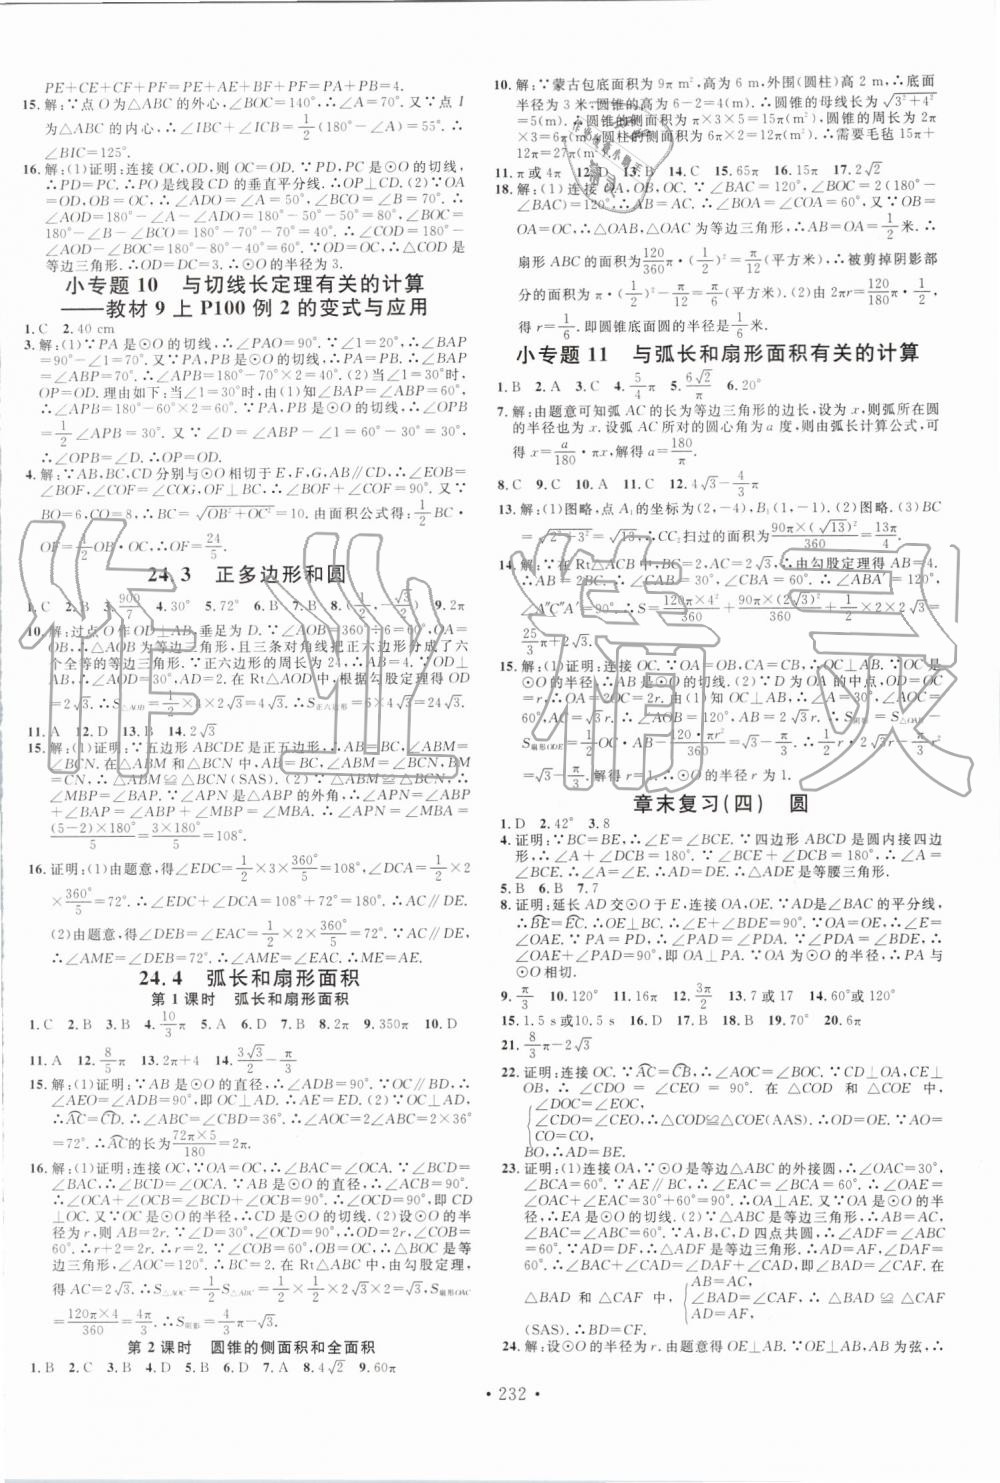 PE+CE+CF+PF=PE+AE+BF+PF=PA+PB=4.
15.解:∵点O为△ABC的外心,∠BOC=140°,∴∠A=70°.又∵点I
为△ABC的内心,∴∠IBC+∠ICB=1/2(180°-∠A)=55°.∴
∠BIC=125°.
16.解:(1)证明:连接OC,OD,则OC=OD.∵PD,PC是⊙O的切线,
∴PD=PC.∴OP是CD的垂直平分线.∴OP⊥CD.(2)∵OA
=OD,OB=OC,∴∠ADO=∠A=50°,∠BCO=∠B=70°.∴
∠AOD=180°-∠A-∠ADO=180°-50°-50°=80°,∠BOC=
180°-∠BCO-∠B=180°-70°-70°=40°.∴∠COD=180°-
∠AOD-∠BOC=180°-80°-40°=60°.∵OD=OC,∴△COD是
等边三角形.∴OD=DC=3.∴⊙O的半径为3.
小专题10 与切线长定理有关的计算
——教材9上P100例2的变式与应用
1.C 2.40 cm
3.解:(1)∵PA是⊙O的切线,∴∠PAO=90°.∵∠1=20°,∴∠BAP
=90°-∠1=70°.又∵PA,PB是⊙O的切线,∴PA=PB.∴∠BAP
=∠ABP=70°.∴∠APB=180°-70°×2=40°.(2)当∠1=30°时,
OP=OD.理由如下:当∠1=30°时,由(1)知∠BAP=∠ABP=60°,
∴∠APB=180°-60°×2=60°.∵PA,PB是⊙O的切线,∴∠OPB
=1/2∠APB=30°.又∵∠D=∠ABP-∠1=60°-30°=30°,
∴∠OPB=∠D.∴OP=OD.
4.解:∵AB,BC,CD分别与⊙O相切于E,F,G,AB//CD,∴∠EOB=
∠BOF,∠COF=∠COG,OF⊥BC,∴∠BOF+∠COF=90°.又∵
BO=6,CO=8,∴BC=√(OB²+OC²)=10.由面积公式得:1/2BC·
OF=1/2OB·OC,∴OF=24/5.
24.3 正多边形和圆
1.C 2.B 3.900/7 4.30° 5.72° 6.B 7.B 9.2π
10.解:过点O作OD⊥AB,垂足为D.∵∠AOB=360°÷6=60°,OA=
OB,∴△AOB为等边三角形,且三条对角线把正六边形分成了六
个全等的等边三角形.∵正六边形的周长为24,∴AB=4.∵OD⊥
AB,∴∠AOD=30°,AD=2.在Rt△AOD中,根据勾股定理得OD
=2√3.∴S△AOB=1/2×4×2√3=4√3.∴S正六边形=6×4√3=24√3.
11.A 12.D 13.B 14.2√3
15.解:(1)证明:∵五边形ABCDE是正五边形,∴AB=BC,∠ABM=
∠BCN.在△ABM和△BCN中,AB=BC,∠ABM=∠BCN,BM=
CN,∴△ABM≌△BCN(SAS).(2)∵△ABM≌△BCN,∴
∠MBP=∠BAP.∵∠APN是△ABP的外角,∴∠APN=∠ABP+
∠BAP=∠ABP+∠MBP=∠ABM.∴∠APN=∠ABM=
(5-2)×180°/5=3×180°/5=108°.
16.证明:(1)由题意,得∠EDC=1/2×3×360°/5=108°,∠DCA=1/2×2
×360°/5=72°.∴∠EDC+∠DCA=108°+72°=180°.∴AC//DE.
(2)由题意,得∠DEB=∠EAC=1/2×2×360°/5=72°.∵AC//DE,
∴∠AME=∠DEB=72°.∴∠AME=∠EAC.∴AE=ME.
24.4 弧长和扇形面积
第1课时 弧长和扇形面积
1.C 2.B 3.B 4.10/3π 5.A 6.D 7.B 8.2π 9.350π 10.D
11.A 12.8/5π 13.2π+4 14.3√3/2-π/3
15.解:(1)证明:∵AB是⊙O的直径,∴∠ADB=90°.∵OC//BD,∴
∠AEO=∠ADB=90°,即OC⊥AD.∴AE=ED.(2)∵OC⊥AD,
∴AC=CD.∴∠ABC=∠CBD=36°.∴∠AOC=2∠ABC=2×36°
=72°.∴AC的长为72π×5/180=2π.
16.解:(1)证明:连接OC,∵OA=OC,∴∠BAC=∠OCA.∵∠BCD=
∠BAC,∴∠BCD=∠OCA.∵AB是直径,∴∠ACB=90°.
∴∠OCA+∠OCB=∠BCD+∠OCB=90°.∴∠OCD=90°,即CD
⊥OC.又∵OC是⊙O的半径,∴CD是⊙O的切线.(2)设⊙O的半
径为r,则AB=2r.∵∠D=30°,∠OCD=90°,∴OD=2r,∠COB=
60°.∴r+2=2r.∴r=2.∵∠COB=60°,OB=OC,∴△BOC是等
边三角形.∴∠AOC=120°.∴BC=2.在Rt△ABC中,由勾股定理,
得AC=2√3.∴S△AOC=1/2S△ABC=1/2×1/2×2×2√3=√3,S扇形OAC=
120π×4/360=4π/3.∴S阴影=4π/3-√3.
第2课时 圆锥的侧面积和全面积
1.B 2.C 3.B 4.D 5.B 6.D 7.A 8.4√2 9.60π
10.解:∵蒙古包底面积为9π m²,高为6 m,外围(圆柱)高2 m,∴底面
半径为3米,圆锥的高为6-2=4(m).∴圆锥的母线长为√(3²+4²)
=5(m).∴圆锥的侧面积为π×3×5=15π(m²),圆柱的侧面积为2π
×3×2=12π(m²).∴需要毛毡15π+
12π=27π(m²).
11.π或4π 12.D 13.C 14.C 15.65π 16.15π 17.2√2
18.解:(1)连接OA,OB,OC.∵∠BAC=120°,∴∠BOC=2(180°-
∠BAC)=120°.∵AB=AC,∴∠AOB=∠AOC=60°.又∵OB=
OA=OC,∴△OAB,△OAC为等边三角形.∴AB=AC=OA=1/2米.∴
扇形ABC的面积为120/360π·(1/2)²=π/12(平方米).∴被剪掉阴影部
分的面积为π·(1/2)²-π/12=π/6(平方米).(2)由2πr=120/180π·1/2,
得r=1/6.即圆锥底面圆的半径是1/6米.
小专题11 与弧长和扇形面积有关的计算
1.B 2.A 3.C 4.5/4π 5.6√2/π 6.20°
7.解:由题意可知弧AC的长为等边三角形的边长,设为x,则弧所在圆
的半径也为x.设弧AC所对的圆心角为a度,则由弧长计算公式,可
得x=a/180·πx,解得a=180/π.
8.C 9.C 10.A 11.C 12.4√3-4/3π
13.解:(1)图略,点A₁的坐标为(2,-4),B₁(1,-1).(2)图略.(3)BC
=√(2²+3²)=√13,∴CC₂扫过的面积为90π×(√13)²/360=13π/4.
15.解:(1)证明:连接OC.∵OA=OB,CA=CB,∴OC⊥AB.∵OC是
⊙O的半径,∴AB是⊙O的切线.(2)∵D为OA的中点,OD=OC=r,
∴OA=2OC=2r.
解得r=1.∴⊙O的半径r为1.
章末复习(四) 圆
1.D 2.42° 3.8
4.证明:∵BC=BE,∴∠E=∠BCE.∵四边形ABCD是圆内接四边
形,∴∠A+∠DCB=180°.∵∠BCE+∠DCB=180°,∴∠A=
∠BCE.∴∠A=∠E.∴AD=DE.∴△ADE是等腰三角形.
5.B 6.B 7.7
8.证明:延长AD交⊙O于E,连接OA,OE.∵AD是∠BAC的平分线,
∴BE=EC.∴OE⊥BC.∴∠E+∠BDE=90°.∵OA=OE,∴∠E=
∠OAE.∵PA=PD,∴∠PAD=∠PDA.∵∠PDA=∠BDE,
∴∠OAE+∠PAD=90°,即OA⊥PA.∵OA为⊙O的半径,∴PA与
⊙O相切.
9.π/3 10.120° 11.16π/3 12.3π/2 13.7或17 14.60°或120°
15.1.5 s或10.5 s 16.D 17.B 18.B 19.70° 20.6π
21.8/3π-2√3
22.证明:连接OC.∵AC=BC,∴∠AOC=∠BOC.∵CD⊥OA,CE⊥
OB,∴∠CDO=∠CEO=90°.在△COD和△COE中,
{∠DOC=∠EOC,
∠CDO=∠CEO,∴△COD≌△COE(AAS).∴OD=OE.∵AO=
CO=CO,
BO,∴AD=BE.
23.证明:(1)连接OA,∵⊙O是等边△ABC的外接圆,∴∠OAC=30°,
∠BCA=60°.∵AE//BC,∴∠EAC=∠BCA=60°.∴∠OAE=
∠OAC+∠EAC=30°+60°=90°.∴OA⊥AE.又∵OA是⊙O的半
径,∴EA是⊙O的切线.(2)∵△ABC是等边三角形,∴AB=AC,
∠BAC=∠ABC=60°.∵A,B,C,D四点共圆,∴∠ADF=∠ABC=
60°.∵AD=DF,∴△ADF是等边三角形.∴AD=AF,∠DAF=60°.
∴∠BAC+∠CAD=∠DAF+∠CAD,即∠BAD=∠CAF.在
△BAD和△CAF中,{AB=AC,
∠BAD=∠CAF,∴△BAD≌△CAF
AD=AF,
(SAS).∴BD=CF.
24.解:设⊙O的半径为r.由题易得OE⊥AB.∵AB为弦,∴
·232·